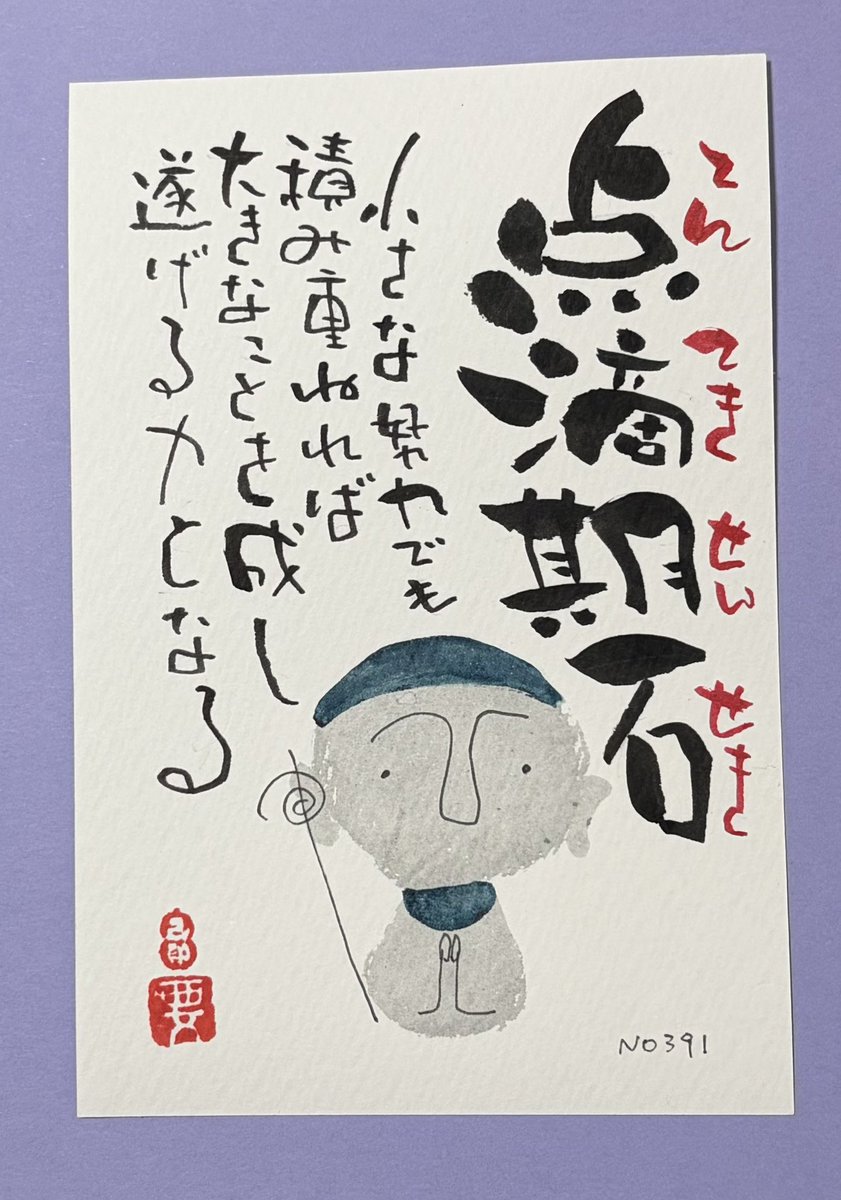 てん てき せん せき
点滴期石
小さな努力でも
積み重ねれば
大きなことを成し
遂げる力となる
要
NO391